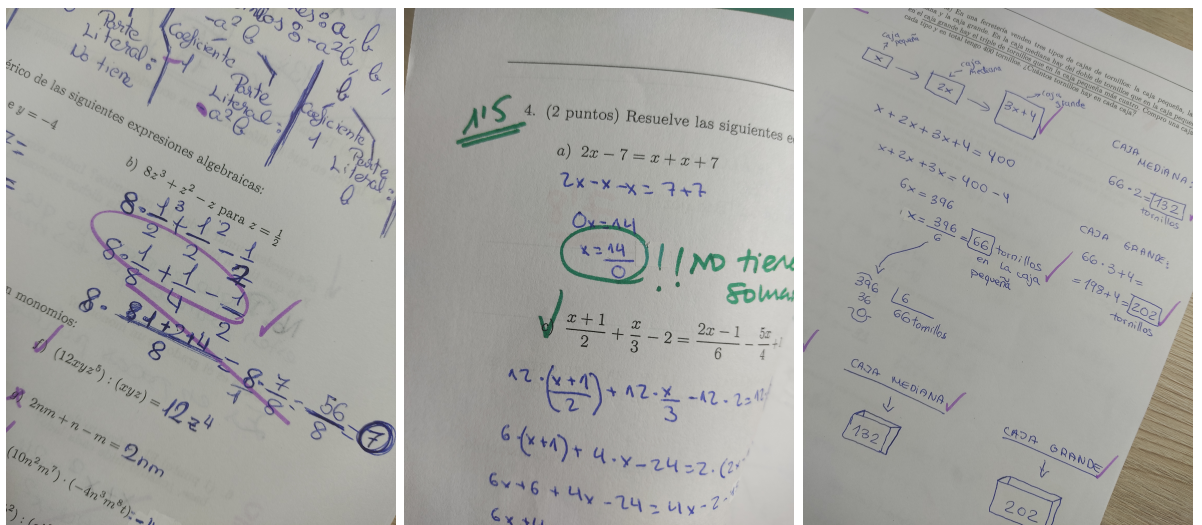 Parte
Literal:
No tiene
Coeficiente
1
Parte
Literal:
a²b
Coeficiente
1
Parte
Literal:
b
érico de las siguientes expresiones algebraicas:
e y = −4
b) 8z³ + z² − z para z = 1/2
8·1/2³ + 1/2² − 1/2
8·1/8 + 1/4 − 1/2
8· 8
8·7/8 = 56/8 = 7
n monomios:
(12xyz⁵) : (xyz) = 12z⁴
2nm + n − m = 2nm
(10n²m⁷) · (−4n³m⁸t)
1'5
4. (2 puntos) Resuelve las siguientes
a) 2x − 7 = x + x + 7
2x−x−x = 7+7
0x=14
x = 14/0
!! NO tiene
(x+1)/2 + x/3 − 2 = (2x−1)/6 − 5x/4
12·(x+1/2) + 12·x/3 −12·2=12
6·(x+1) + 4·x−24=2·(2x
6x+6 + 4x −24 = 4x−2
En una ferretería venden tres tipos de cajas de tornillos: la caja pequeña, la
y la caja grande. En la caja mediana hay del doble de tornillos que en la caja
en el caja grande hay el triple de tornillos que en la caja pequeña más cuatro. Compro una caja
cada tipo y en total tengo 400 tornillos. ¿Cuántos tornillos hay en cada caja?
caja
pequeña
x
caja
mediana
2x
caja
grande
3x+4
x+2x+3x+4=400
x+2x+3x=400−4
6x=396
x=396/6=66 tornillos
en la caja
pequeña
396
36
6
66 tornillos
CAJA
MEDIANA:
66·2=132
tornillos
CAJA GRANDE:
66·3+4=
=198+4=202
tornillos
CAJA MEDIANA
132
CAJA GRANDE
202